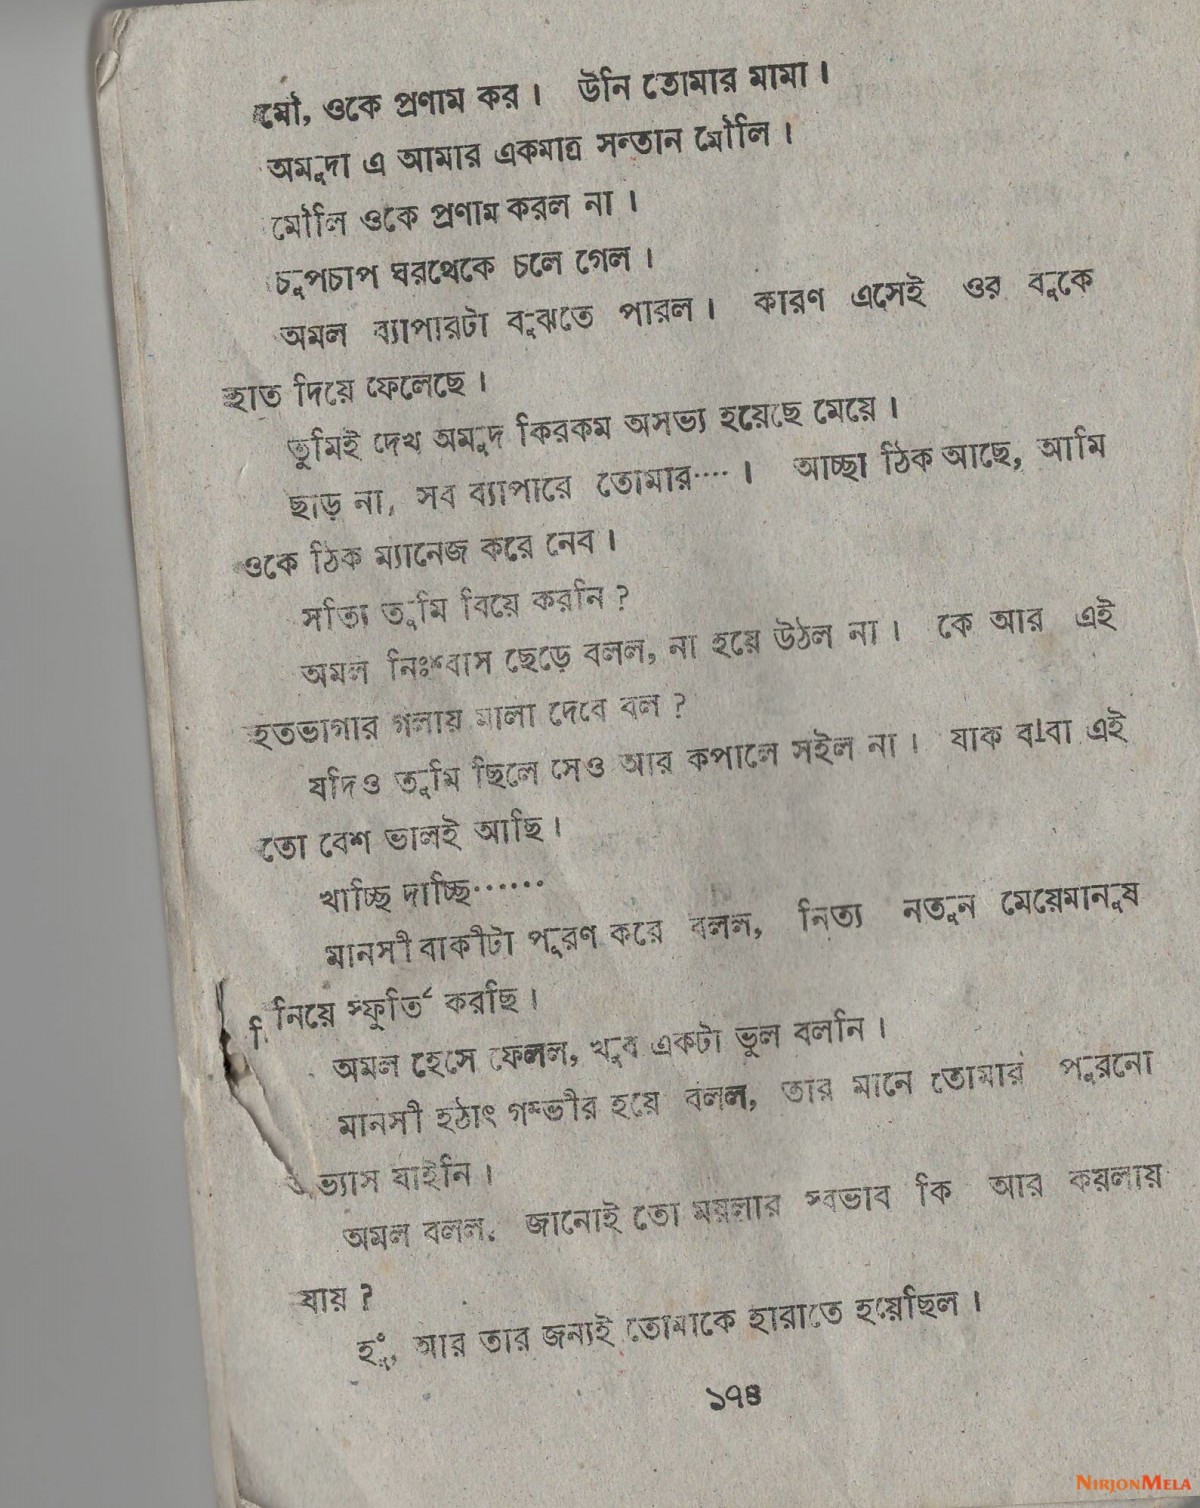 মৌ, ওকে প্রণাম কর। উনি তোমার মামা।
অমুদা এ আমার একমাত্র সন্তান মৌলি।
মৌলি ওকে প্রণাম করল না।
চুপচাপ ঘরথেকে চলে গেল।
অমল ব্যাপারটা বুঝতে পারল। কারণ এসেই ওর বুকে
হাত দিয়ে ফেলেছে।
তুমিই দেখ অমুদ কিরকম অসভ্য হয়েছে মেয়ে।
ছাড় না, সব ব্যাপারে তোমার····। আচ্ছা ঠিক আছে, আমি
ওকে ঠিক ম্যানেজ করে নেব।
সত্যি তুমি বিয়ে করনি?
অমল নিঃশ্বাস ছেড়ে বলল, না হয়ে উঠল না। কে আর এই
হতভাগার গলায় মালা দেবে বল?
যদিও তুমি ছিলে সেও আর কপালে সইল না। যাক বাবা এই
তো বেশ ভালই আছি।
খাচ্ছি দাচ্ছি······
মানসী বাকীটা পুরণ করে বলল, নিত্য নতুন মেয়েমানুষ
নিয়ে স্ফুর্তি করছি।
অমল হেসে ফেলল, খুব একটা ভুল বলনি।
মানসী হঠাৎ গম্ভীর হয়ে বলল, তার মানে তোমার পুরনো
অভ্যাস যাইনি।
অমল বলল. জানোই তো ময়লার স্বভাব কি আর কয়লায়
যায়?
হুঁ, আর তার জন্যই তোমাকে হারাতে হয়েছিল।
১৭৪
NIRJONMELA